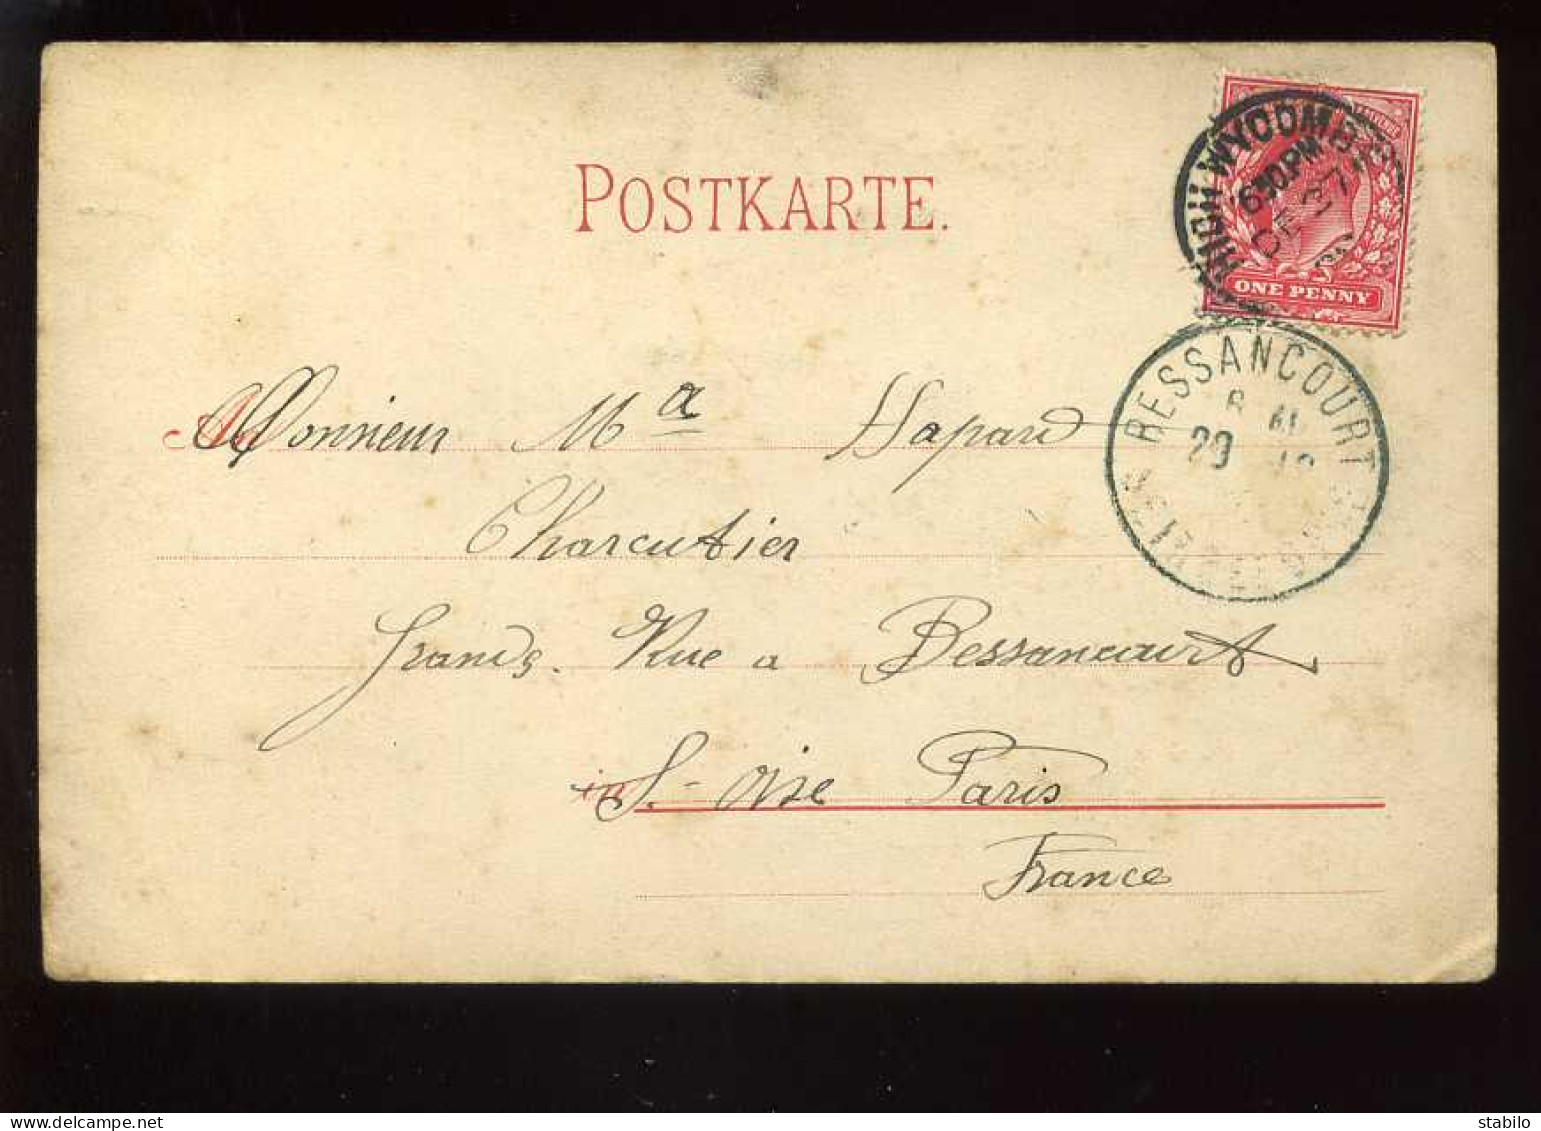 POSTKARTE.
HIGH WYCOMBE
6.30 PM
DE 27
ONE PENNY
BESSANCOURT
29
An
Monsieur Ma Hapard
Charcutier
Grands. Rue a Bessancourt
in
S.- Oise Paris
France
stabilo